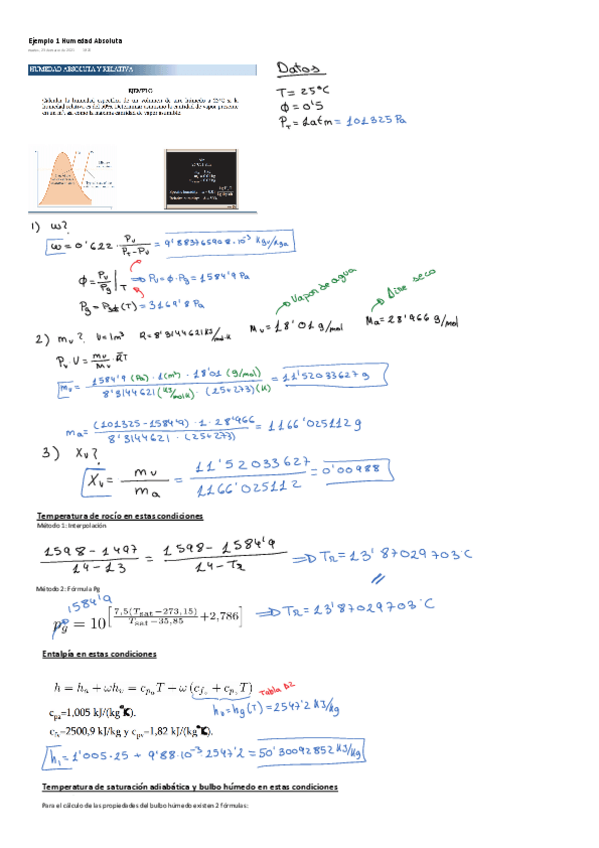 Ejemplo 1 Humedad Absoluta
HUMEDAD ABSOLUTA Y RELATIVA
EJEMPLO
Datos
T = 25°C
Φ = 0'5
P_T = 1 atm = 101325 Pa
1) ω?
ω = 0'622 · P_v / (P_t - P_v) = 9'883765908·10⁻³ kgv/kga
Φ = P_v / P_g |_T ⇒ P_v = Φ · P_g = 1584'9 Pa
P_g = P_sat (T) = 3169'8 Pa
Vapor de agua
Aire seco
2) m_v? V = 1m³ R = 8'3144621 kJ/mol·K M_v = 18'01 g/mol M_a = 28'966 g/mol
P_v · V = m_v / M_v · R̄T
m_v = 1584'9 (Pa) · 1(m³) · 18'01 (g/mol) / 8'3144621 (kJ/mol K) · (25+273) (K) = 11'52033627 g
m_a = (101325 - 1584'9) · 1 · 28'966 / 8'3144621 · (25+273) = 1166'025112 g
3) X_v?
X_v = m_v / m_a = 11'52033627 / 1166'025112 = 0'00988
Temperatura de rocío en estas condiciones
Método 1: Interpolación
1598 - 1497 / 14 - 13 = 1598 - 1584'9 / 14 - T_R ⇒ T_R = 13'87029703 °C
Método 2: Fórmula Pg
1584'9
p_g = 10^[7,5(T_sat − 273,15) / (T_sat − 35,85) + 2,786] ⇒ T_R = 13'87029703 °C
Entalpía en estas condiciones
h = h_a + ωh_v = c_pa T − ω (c_fo + c_pv T) Tabla A2
h_v = h_g (T) = 2547'2 kJ/kg
c_pa=1,005 kJ/(kg°K).
c_fo=2500,9 kJ/kg y c_pv=1,82 kJ/(kg°K).
h_1 = 1'005·25 + 9'88·10⁻³ 2547'2 = 50'30092852 kJ/kg
Temperatura de saturación adiabática y bulbo húmedo en estas condiciones
Para el cálculo de las propiedades del bulbo húmedo existen 2 fórmulas: